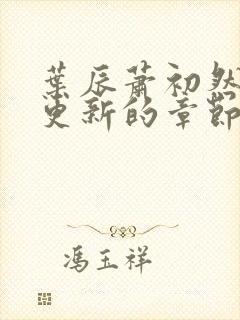 葉辰蕭初然
更新的章節
馮玉祥